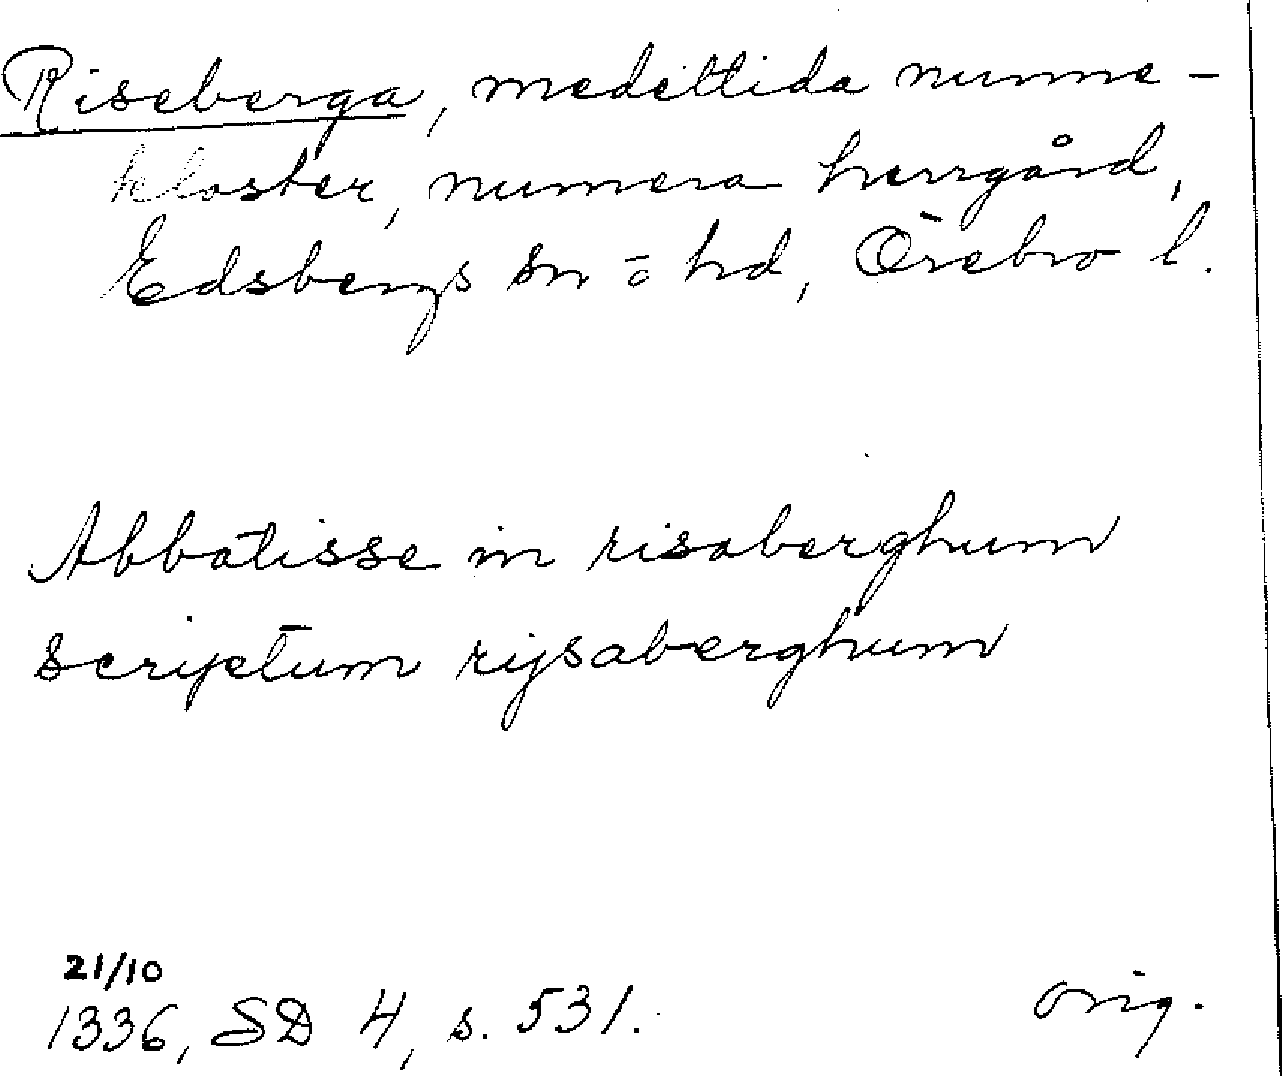 Riseberga, medeltida nunne-
kloster, numera herrgård,
Edsbergs sn o hd, Örebro l.
Abbatisse in risaberghum
scriptum rijsaberghum
21/10
1336, SD 4, s. 531. orig.